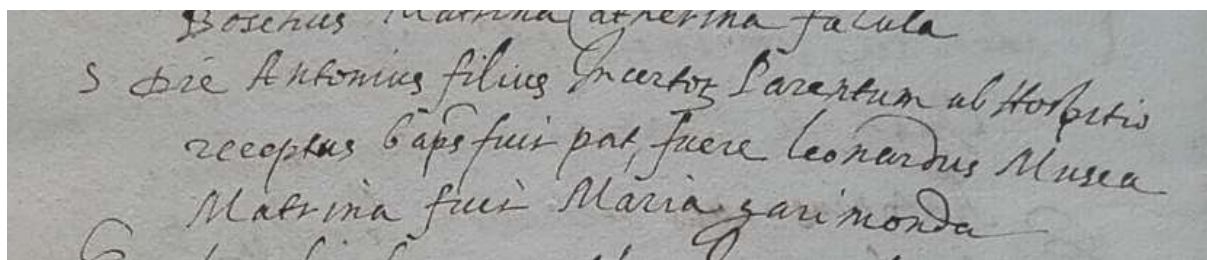 Boschus Matrina Catherina facula
5 Die Antonius filius Incertoꝝ Parentum ab Hospitio
receptus baps fuit pat, fuere leonardus Musca
Matrina fuit Maria garimonda